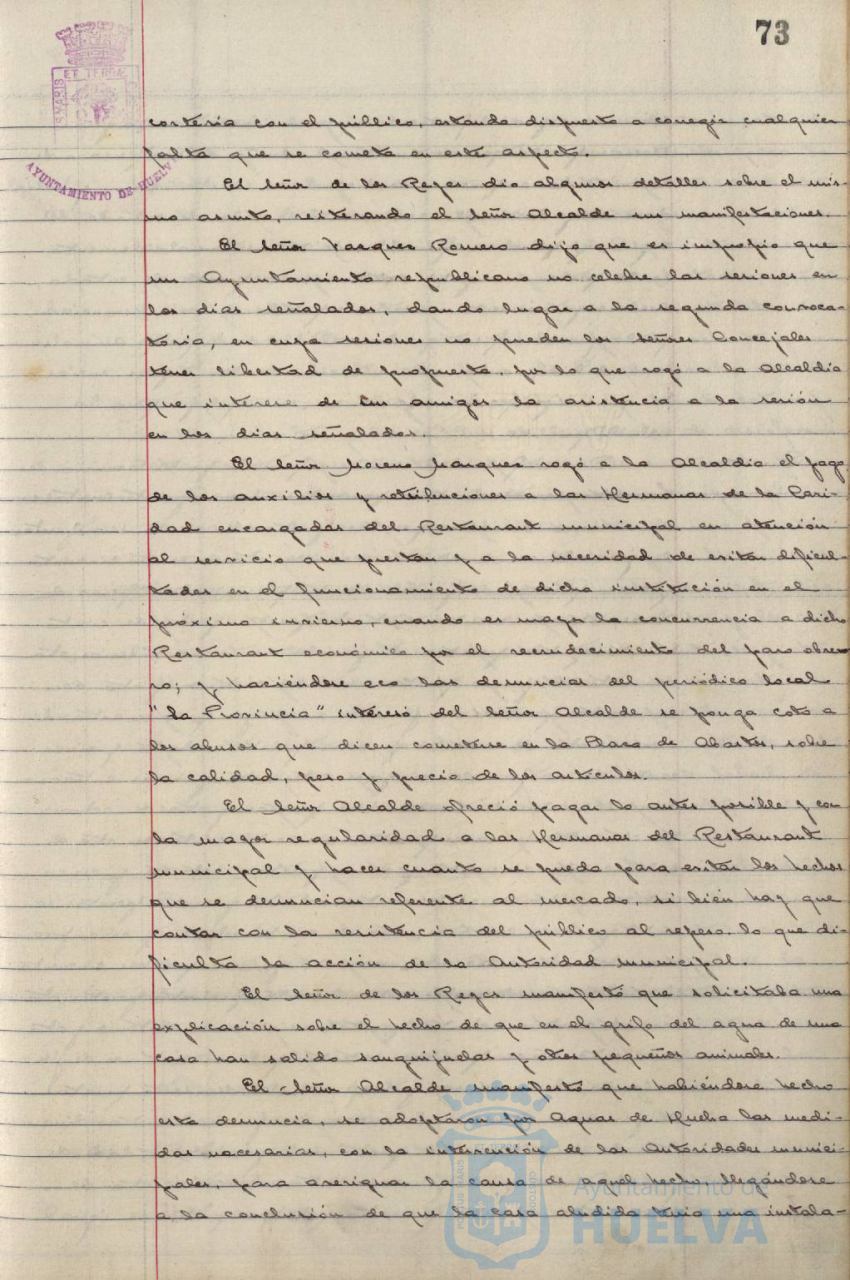 73
ET TERRÆ
AYUNTAMIENTO DE HUELVA
cortesía con el público, estando dispuesto a corregir cualquier
falta que se cometa en este aspecto.
El Señor de los Reyes dio algunos detalles sobre el mis-
mo asunto, reiterando el Señor Alcalde sus manifestaciones.
El Señor Vazquez Romero dijo que es impropio que
un Ayuntamiento republicano no celebre las sesiones en
los dias señalados, dando lugar a la segunda convoca-
toria, en cuya sesiones no pueden los Señores Concejales
tener libertad de propuesta, por lo que rogó a la Alcaldía
que interese de sus amigos la asistencia a la sesión
en los dias señalados.
El Señor Moreno Marquez rogó a la Alcaldía el pago
de los auxilios y retribuciones a las Hermanas de la Cari-
dad encargadas del Restaurant municipal en atención
al servicio que prestan y a la necesidad de evitar dificul-
tades en el funcionamiento de dicha institución en el
próximo invierno, cuando es mayor la concurrencia a dicho
Restaurant económico por el recrudecimiento del paro obre-
ro; y haciéndose eco las denuncias del periódico local
"La Provincia" interesó del Señor Alcalde se ponga coto a
los abusos que dicen cometerse en la Plaza de Abastos, sobre
la calidad, peso y precio de los artículos.
El Señor Alcalde ofreció pagar lo antes posible y con
la mayor regularidad a las Hermanas del Restaurant
municipal y hacer cuanto se pueda para evitar los hechos
que se denuncian referente al mercado, si bién hay que
contar con la resistencia del público al repeso, lo que di-
ficulta la acción de la Autoridad municipal.
El Señor de los Reyes manifestó que solicitaba una
explicación sobre el hecho de que en el grifo del agua de una
casa han salido sanguijuelas y otros pequeños animales.
El Señor Alcalde manifestó que habiéndose hecho
esta denuncia, se adoptaron por Aguas de Huelva las medi-
das necesarias, con la intervención de las Autoridades munici-
pales, para averiguar la causa de aquel hecho, llegándose
a la conclusión de que la casa aludida tenia una instala-
Ayuntamiento de
HUELVA